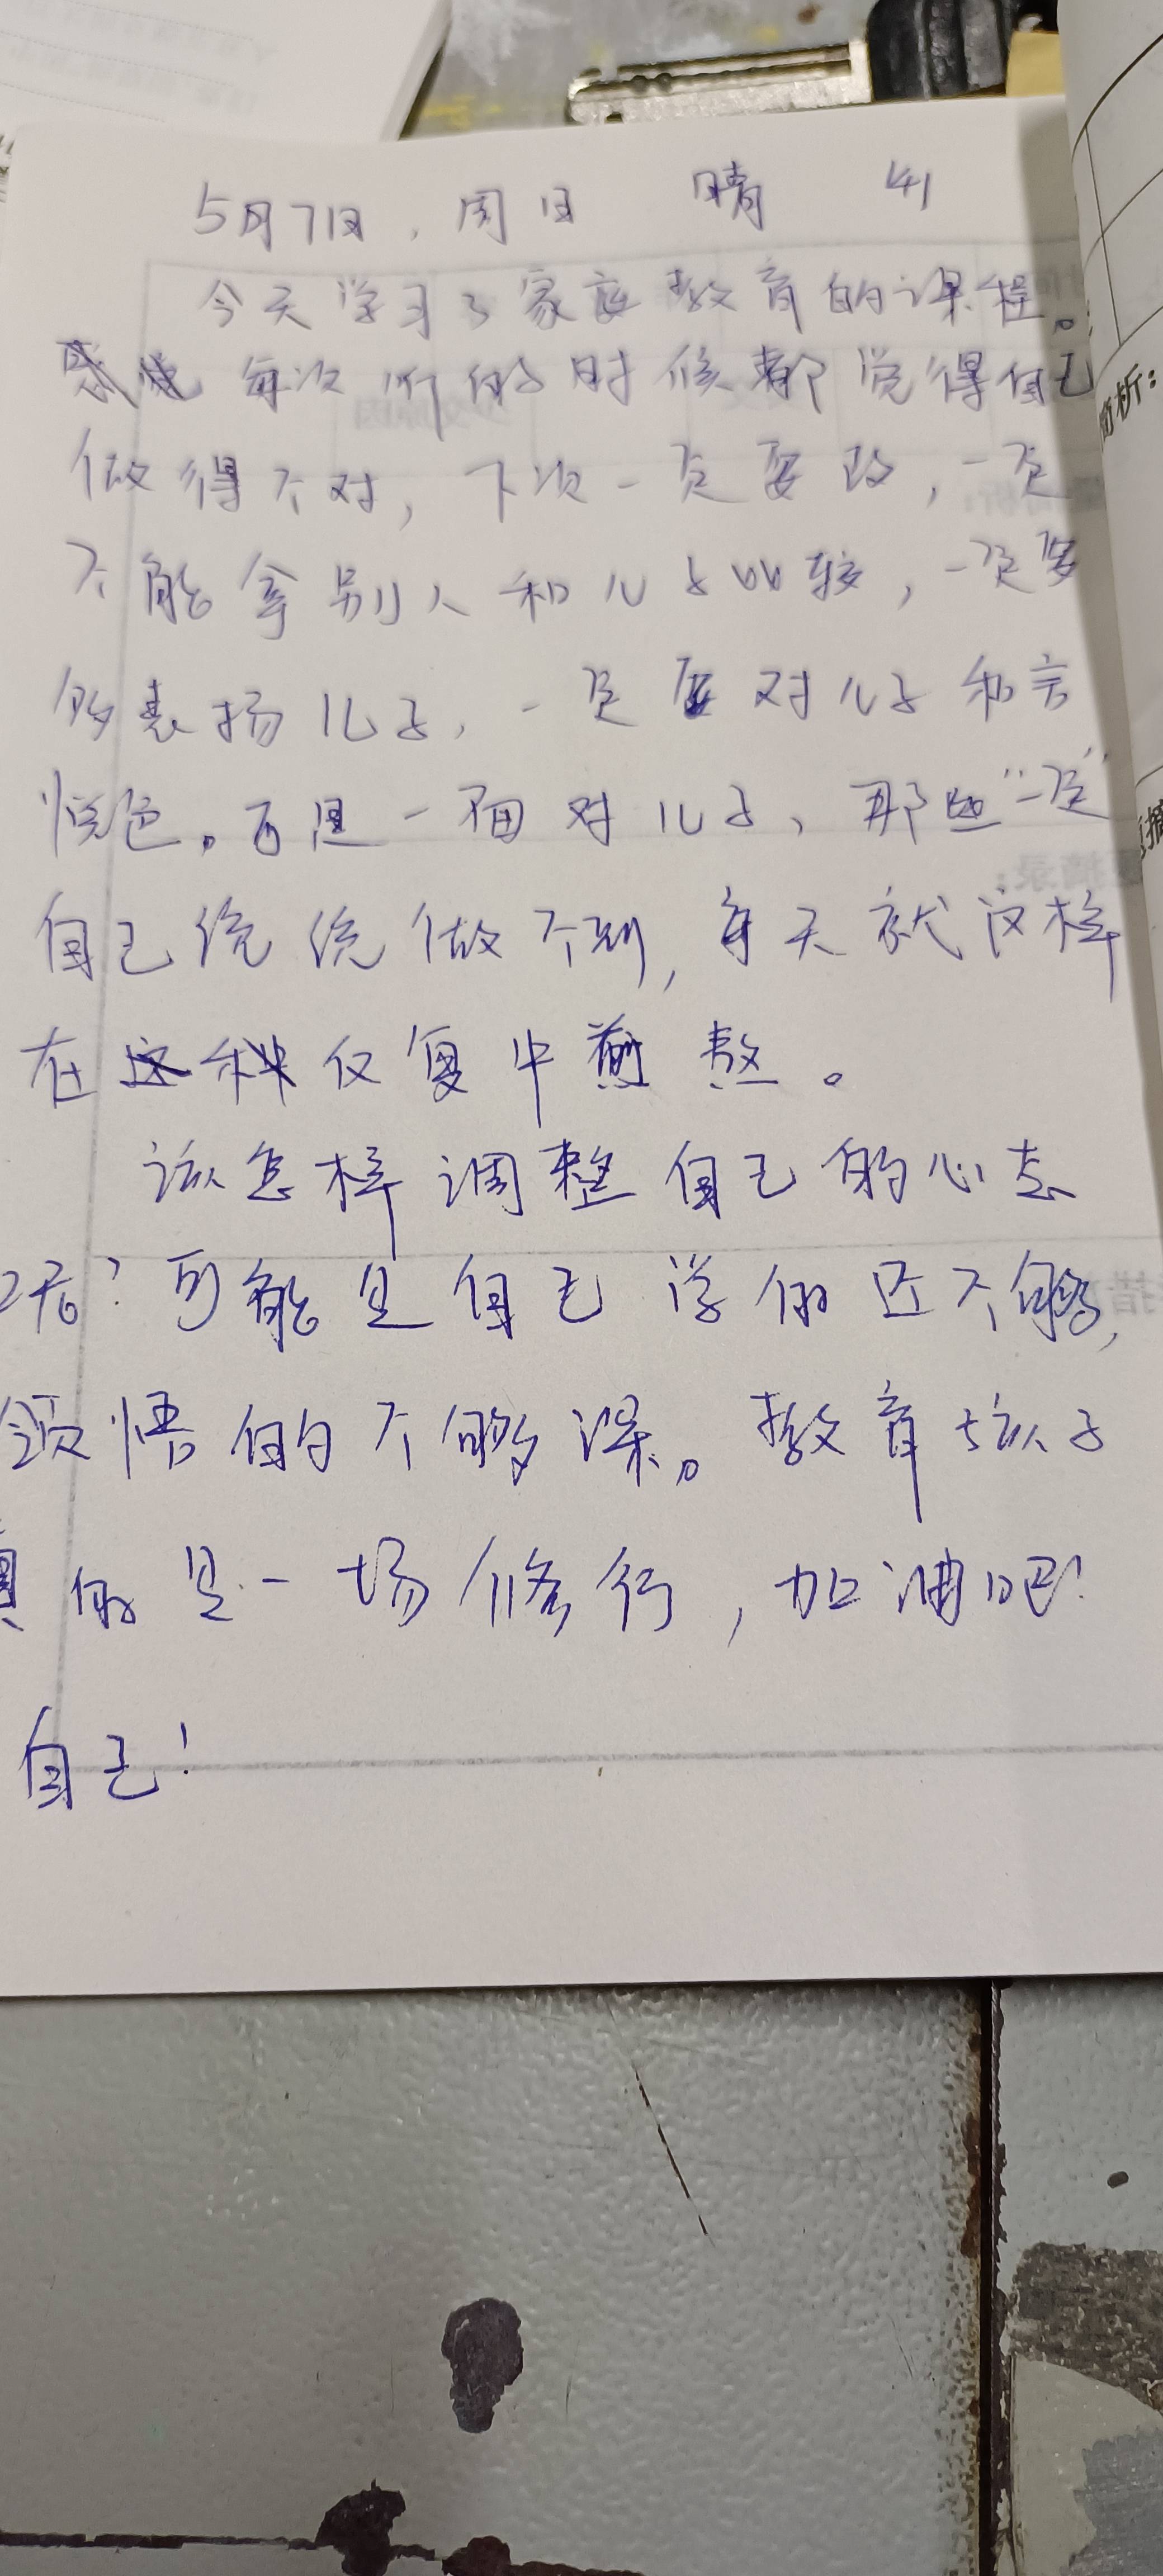 5月7日，周日 晴 41
今天学习了家庭教育的课程。
感觉每次听的时候都觉得自己
做得不对，下次一定要改，一定
不能拿别人和儿子比较，一定要
多表扬儿子，一定要对儿子和言
悦色。可是一面对儿子，那些“一定”
自己统统做不到，每天就这样
在反复中煎熬。
该怎样调整自己的心态
呢？可能是自己学的还不够，
领悟的不够深。教育孩子
真的是一场修行，加油吧！
自己！
简析：
摘